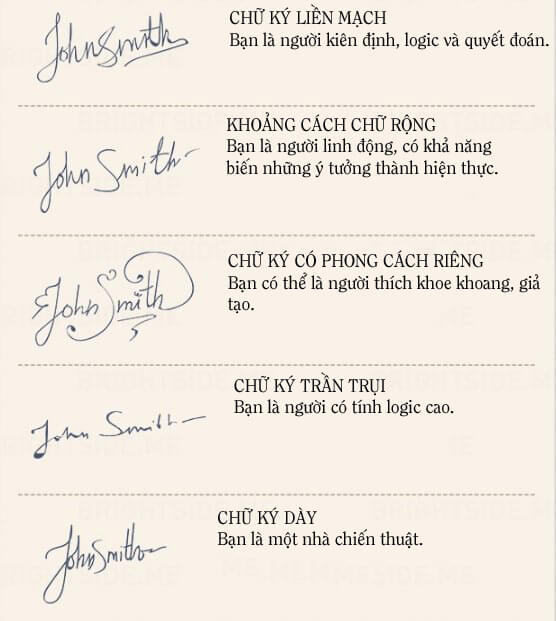 John Smith
CHỮ KÝ LIỀN MẠCH
Bạn là người kiên định, logic và quyết đoán.
John Smith
KHOẢNG CÁCH CHỮ RỘNG
Bạn là người linh động, có khả năng
biến những ý tưởng thành hiện thực.
John Smith
CHỮ KÝ CÓ PHONG CÁCH RIÊNG
Bạn có thể là người thích khoe khoang, giả
tạo.
John Smith
CHỮ KÝ TRẦN TRỤI
Bạn là người có tính logic cao.
John Smith
CHỮ KÝ DÀY
Bạn là một nhà chiến thuật.